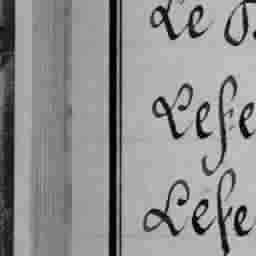 Le
Lefe
Lefe